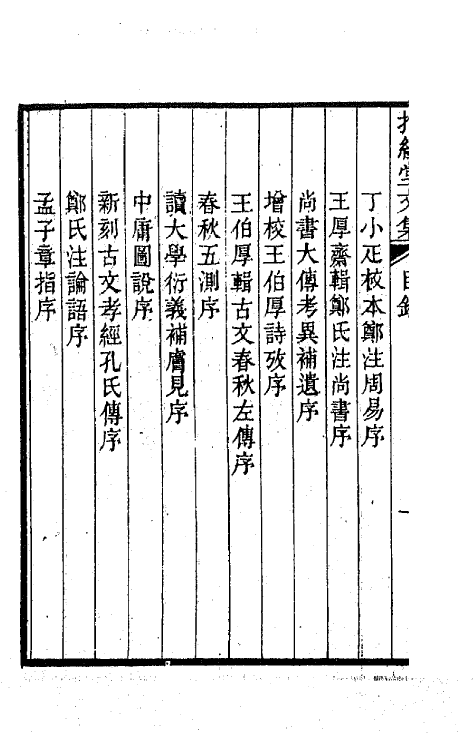 抱經堂文集 目錄 一
丁小疋校本鄭注周易序
王厚齋輯鄭氏注尚書序
尚書大傳考異補遺序
增校王伯厚詩攷序
王伯厚輯古文春秋左傳序
春秋五測序
讀大學衍義補膚見序
中庸圖說序
新刻古文孝經孔氏傳序
鄭氏注論語序
孟子章指序